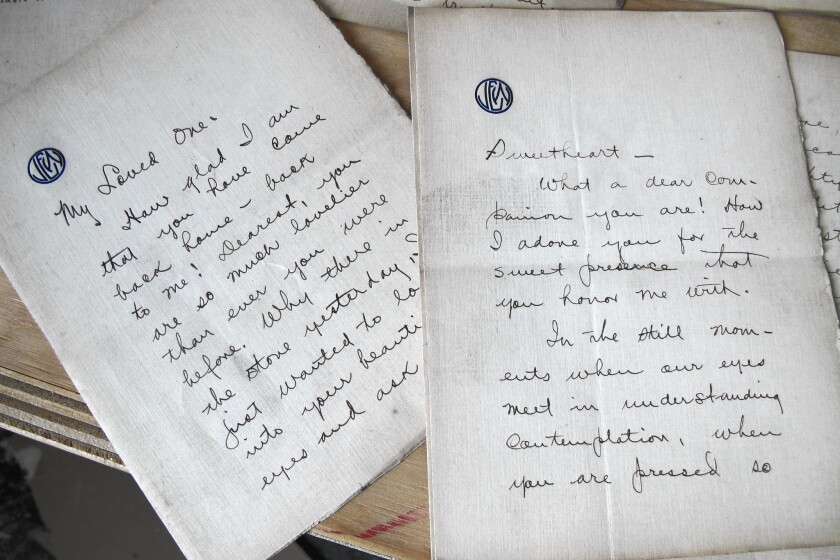 JEW
My Loved One:
How glad I am
that you have come
back home - back
to me! Dearest, you
are so much lovelier
than ever you were
before. Why there in
the store yesterday, I
just wanted to lo
into your beauti
eyes and ask
JEW
Sweetheart —
What a dear com-
panion you are! How
I adore you for the
sweet presence that
you honor me with.
In the still mom-
ents when our eyes
meet in understanding
contemplation, when
you are pressed so